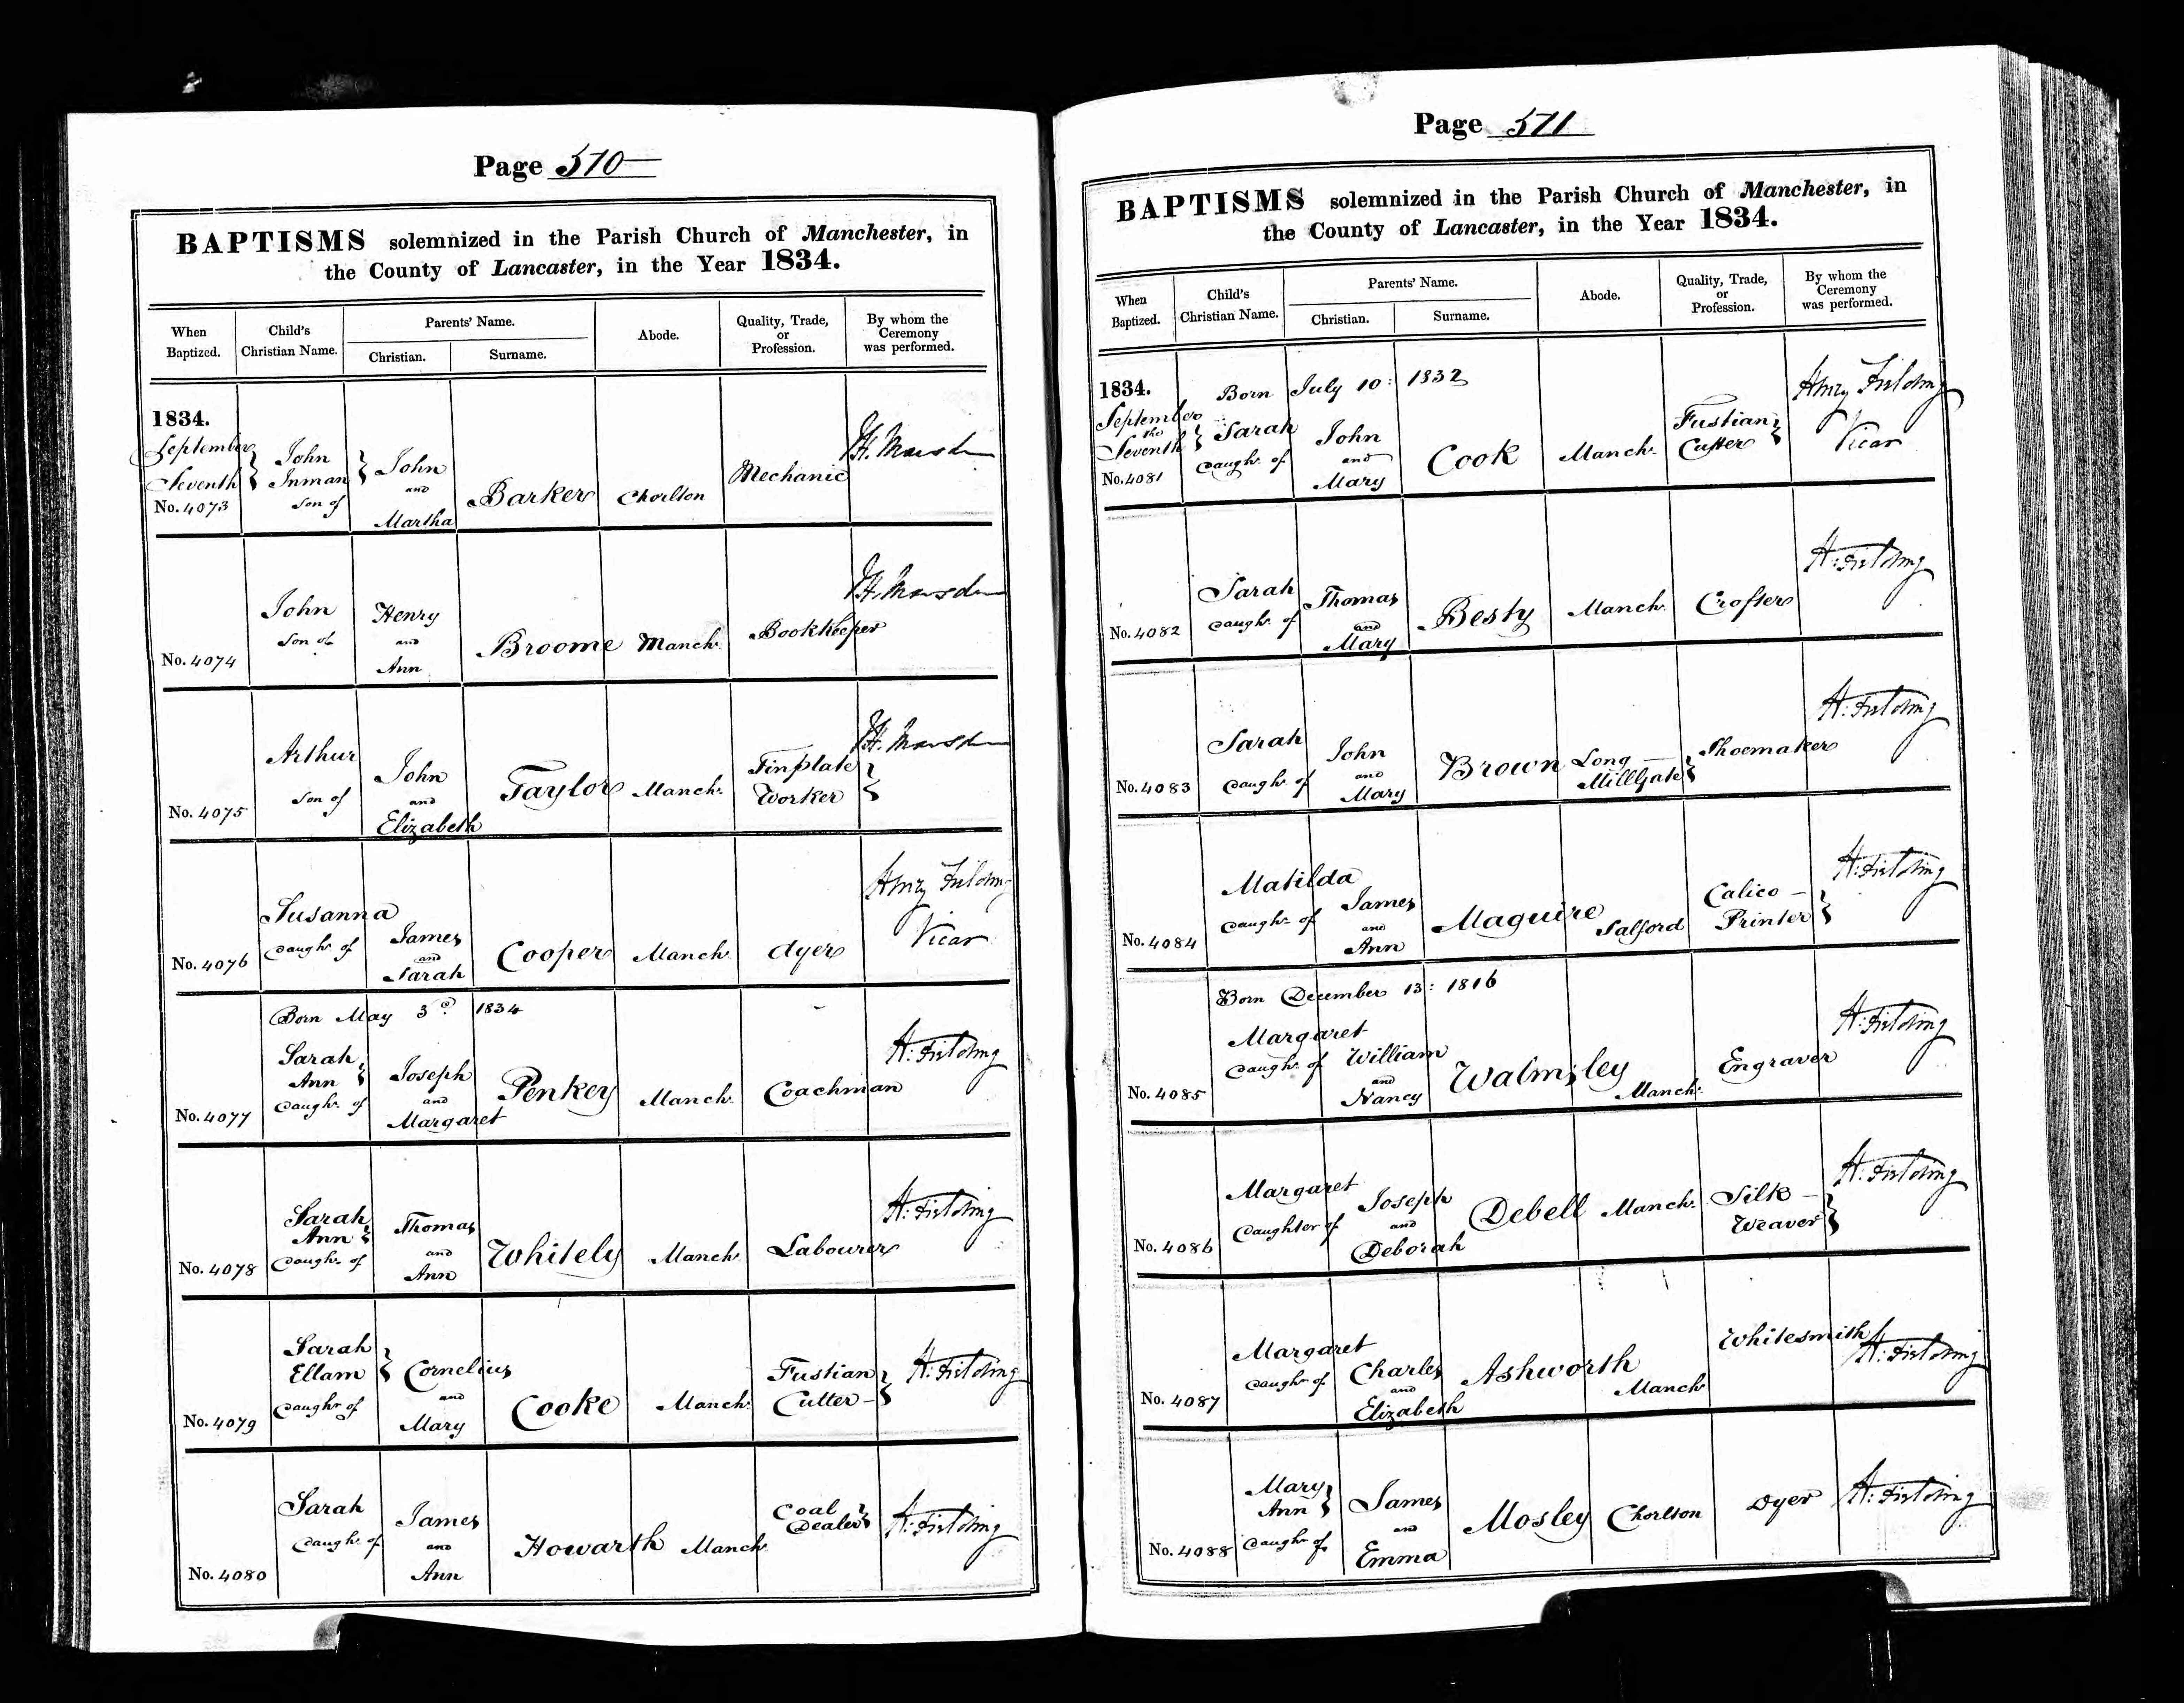 Page 570
BAPTISMS solemnized in the Parish Church of Manchester, in
the County of Lancaster, in the Year 1834.
When Baptized. Child's Christian Name. Parents' Name. Christian. Surname. Abode. Quality, Trade, or Profession. By whom the Ceremony was performed.
1834.
September Seventh No. 4073 John Inman Son of John and Martha Barker Chorlton Mechanic H. Marsden
No. 4074 John Son of Henry and Ann Broome Manchr. Bookkeeper H. Marsden
No. 4075 Arthur Son of John and Elizabeth Taylor Manchr. Tinplate Worker H. Marsden
No. 4076 Susanna Daughr. of James and Sarah Cooper Manchr. Dyer Henry Fielding Vicar
Born May 3d. 1834
No. 4077 Sarah Ann Daughr. of Joseph and Margaret Penkey Manchr. Coachman H: Fielding
No. 4078 Sarah Ann Daughr. of Thomas and Ann Whitely Manchr. Labourer H: Fielding
No. 4079 Sarah Ellam Daughr. of Cornelius and Mary Cooke Manchr. Fustian Cutter H: Fielding
No. 4080 Sarah Daughr. of James and Ann Howarth Manchr. Coal Dealer H: Fielding
Page 571
BAPTISMS solemnized in the Parish Church of Manchester, in
the County of Lancaster, in the Year 1834.
When Baptized. Child's Christian Name. Parents' Name. Christian. Surname. Abode. Quality, Trade, or Profession. By whom the Ceremony was performed.
1834. Born July 10: 1832
September the Seventh No. 4081 Sarah Daughr. of John and Mary Cook Manchr. Fustian Cutter Henry Fielding Vicar
No. 4082 Sarah Daughr. of Thomas and Mary Besty Manchr. Crofter H: Fielding
No. 4083 Sarah Daughr. of John and Mary Brown Long Millgate Shoemaker H: Fielding
No. 4084 Matilda Daughr. of James and Ann Maguire Salford Calico Printer H: Fielding
Born December 13: 1816
No. 4085 Margaret Daughr. of William and Nancy Walmsley Manchr. Engraver H: Fielding
No. 4086 Margaret Daughter of Joseph and Deborah Debell Manchr. Silk Weaver H: Fielding
No. 4087 Margaret Daughr. of Charles and Elizabeth Ashworth Manchr. Whitesmith H: Fielding
No. 4088 Mary Ann Daughr. of James and Emma Mosley Chorlton Dyer H: Fielding